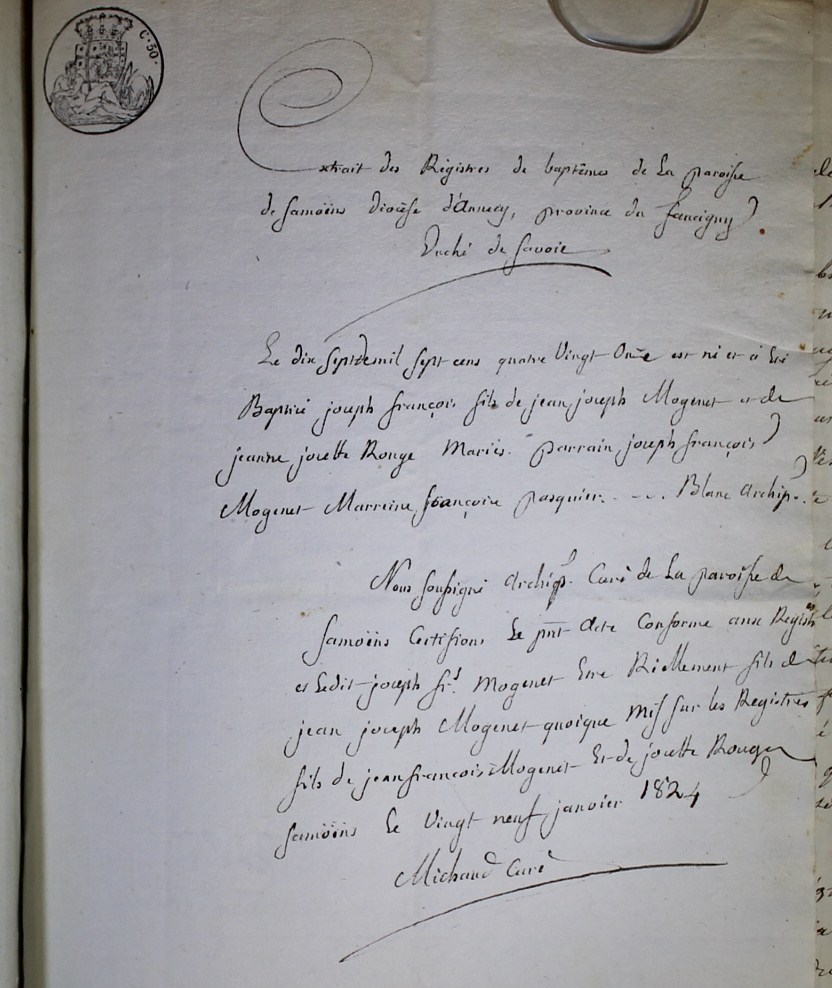 C. 50.
Extrait des Régistres de baptêmes de La paroisse
de samoëns Diocèse d'Annecy, province du faucigny
Duché de savoie
Le dix sept mil sept cens quatre Vingt Onze est né et a été
Baptisé joseph françois fils de jean joseph Mogenet et de
jeanne josette Rouge Mariés. parrain joseph françois
Mogenet Marreine françoise pasquier. - - . Blanc archip.
Nous soussigné archip. Curé de La paroisse de
samoëns Certifions Le pnt acte Conforme aux Regist
et Ledit joseph frs. Mogenet Etre Réellement fils de
jean joseph Mogenet quoique mis sur les Registres
fils de jean francois Mogenet Et de josette Rouge
samoëns Le Vingt neuf janvier 1824
Michaud Curé